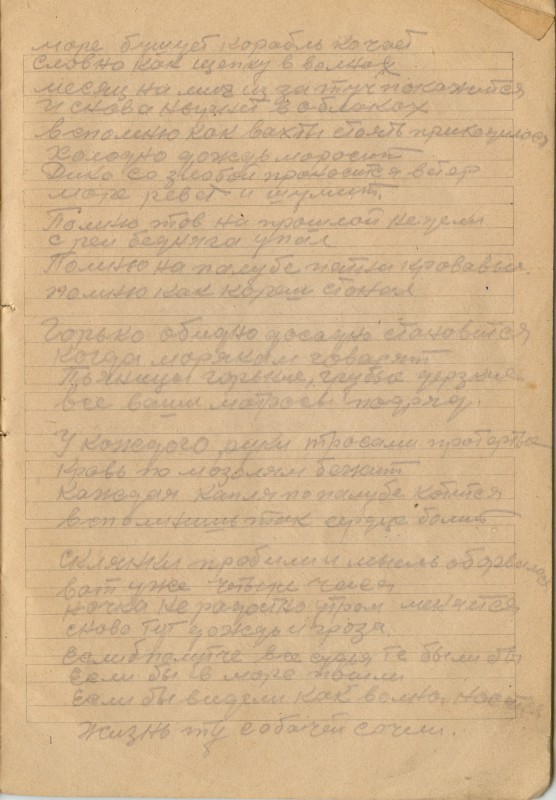 море бушует корабль качает
словно как щепку в волнах
месяц на миг из за туч покажится
и снова нырнет в облаках
вспомню как вахты стоять приходилось
холодно дождь моросит
Дико со злобой проносится ветер
море ревет и шумит.
Помню тов на прошлой недели
с реи бедняга упал
Помню на палубе пятна кровавыя
помню как кореш стонал
Горько обидно досадно становится
когда морякам говорят
Пьяницы горькие, грубые дерзкие
все ваши матросы подряд.
У каждого руки тросами протерты
кровь по мозолям бежит
каждая капля по палубе котится
вспомнишь так сердце болит
Склянки пробили и мысль оборвалась
вот уже четыре часа
ночка не радостно утром меняется
снова тут дождь и гроза
Если б вы все судя те были бы
Если бы в море
Если бы видели как волны
жизнь ту собачей сочли.